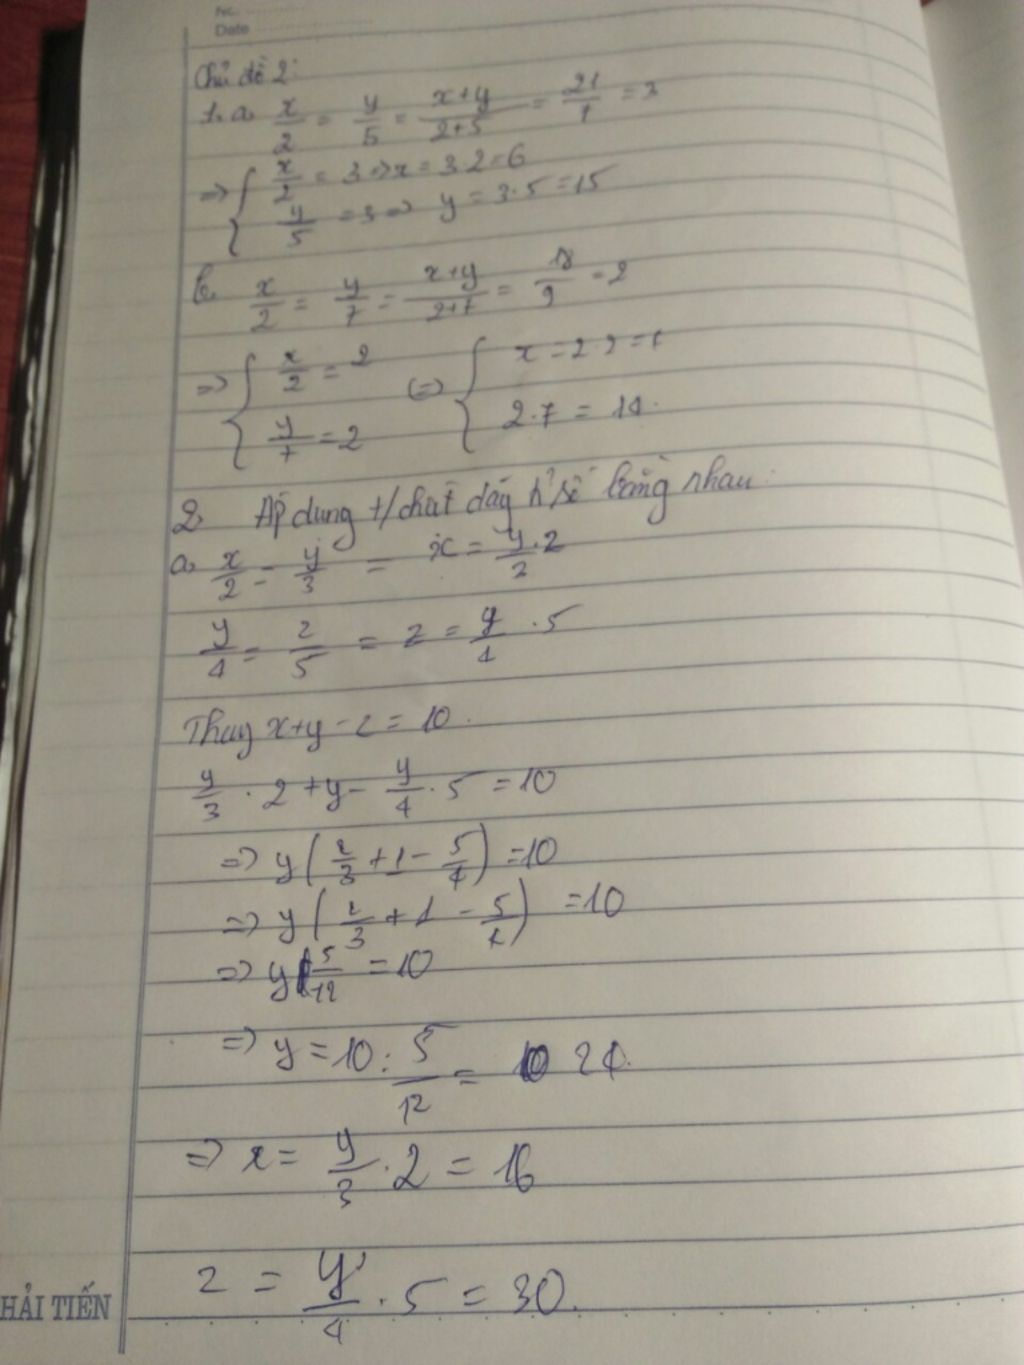 No.
Date
Chủ đề 2:
1. a. x/2 = y/5 = (x+y)/(2+5) = 21/7 = 3
=> { x/2 = 3 => x = 3.2 = 6
y/5 = 3 => y = 3.5 = 15
b. x/2 = y/7 = (x+y)/(2+7) = 18/9 = 2
=> { x/2 = 2 (=) { x = 2.2 = 4
y/7 = 2 2.7 = 14.
2. Áp dụng t/chất dãy tỉ số bằng nhau:
a. x/2 = y/3 = x = y/3 . 2
y/4 = z/5 = z = y/4 . 5
Thay x+y-z = 10.
y/3 . 2 + y - y/4 . 5 = 10
=> y(2/3 + 1 - 5/4) = 10
=> y(2/3 + 1 - 5/4) = 10
=> y 5/12 = 10
=> y = 10 : 5/12 = 24.
=> x = y/3 . 2 = 16
z = y/4 . 5 = 30.
HẢI TIẾN